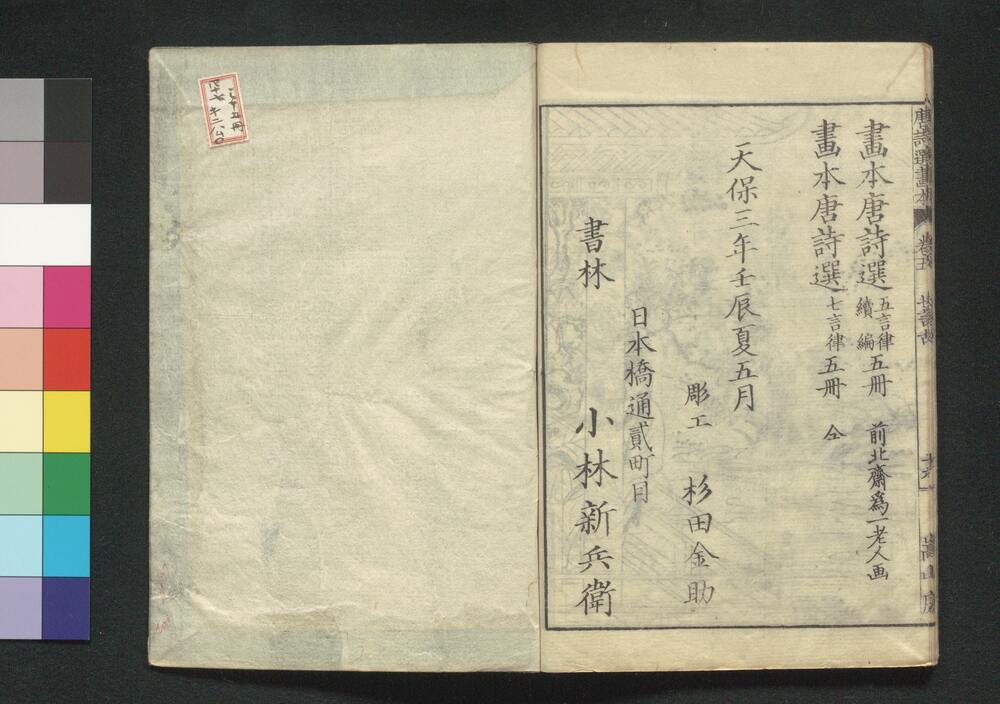 畫本唐詩選 五言律 續編 五冊 前北齋爲一老人画
畫本唐詩選 七言律 五冊 仝
天保三年壬辰夏五月
彫工 杉田金助
日本橋通貳町目
書林 小林新兵衛
唐詩選畫本 卷五